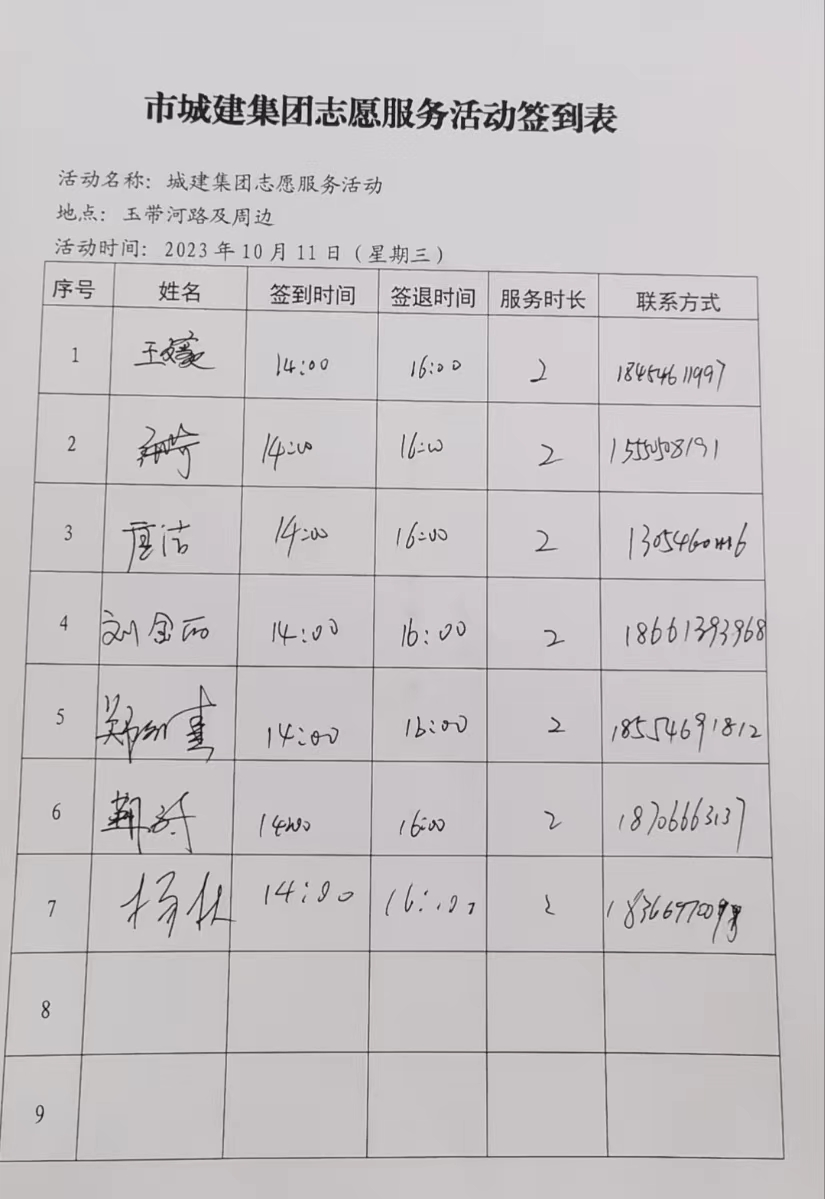 市城建集团志愿服务活动签到表
活动名称：城建集团志愿服务活动
地点：玉带河路及周边
活动时间：2023年10月11日（星期三）
序号 姓名 签到时间 签退时间 服务时长 联系方式
1 14:00 16:00 2 18454611997
2 14:00 16:00 2
3 唐洁 14:00 16:00 2
4 刘金丽 14:00 16:00 2 18661393968
5 14:00 16:00 2 18554691812
6 14:00 16:00 2
7 杨林 14:00 16:00 2
8
9